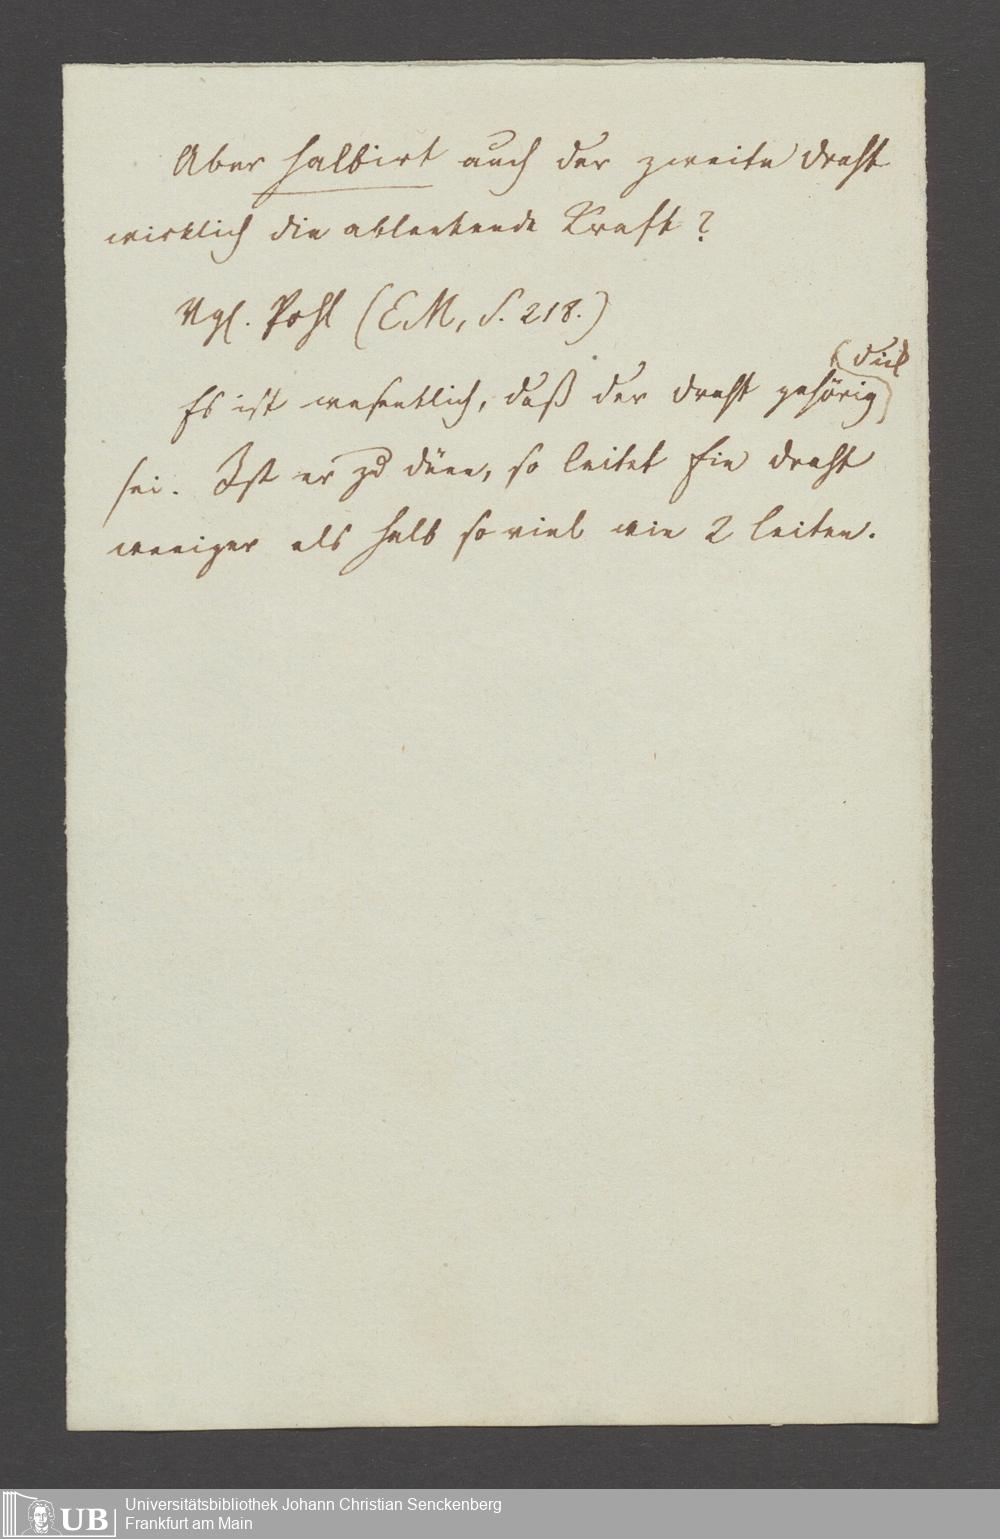 Aber halbirt auch der zweite Draht
wirklich die ablenkende Kraft?
Vgl. Pohl (EM, S. 218.)
Es ist wesentlich, daß der Draht gehörig dick
sei. Ist er zu dünn, so leitet Ein Draht
weniger als halb so viel wie 2 leiten.
UB
Universitätsbibliothek Johann Christian Senckenberg
Frankfurt am Main